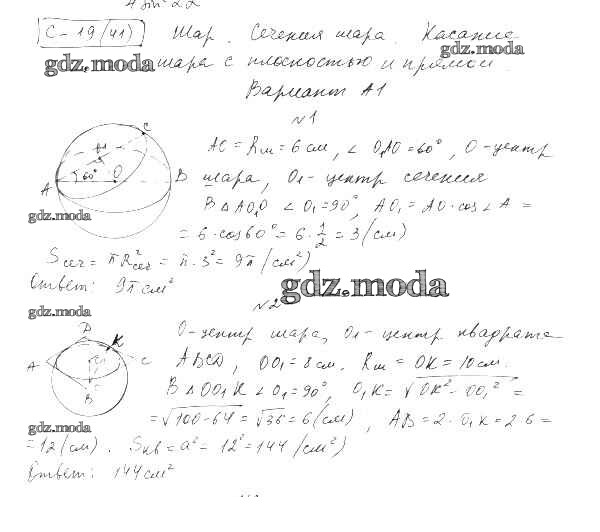 4 sin² 22
С-19 (41) Шар. Сечения шара. Касание
gdz.moda
gdz.moda шара с плоскостью и прямой.
Вариант А1
№1
AO = Rш = 6 см, ∠ O₁AO = 60°, O - центр
шара, O₁ - центр сечения
В △ AO₁O ∠ O₁ = 90°, AO₁ = AO · cos ∠ A =
gdz.moda
= 6 · cos 60° = 6 · 1/2 = 3 (см)
Sсеч = πR²сеч = π · 3² = 9π (см²)
Ответ: 9π см²
gdz.moda
№2
gdz.moda
O - центр шара, O₁ - центр квадрата
ABCD, OO₁ = 8 см. Rш = OK = 10 см.
В △ OO₁K ∠ O₁ = 90°, O₁K = √OK² - OO₁² =
= √100 - 64 = √36 = 6 (см), AB = 2 · O₁K = 2 · 6 =
gdz.moda
= 12 (см). Sкв = a² = 12² = 144 (см²)
Ответ: 144 см²
A
B
C
O
60°
A
B
C
D
K